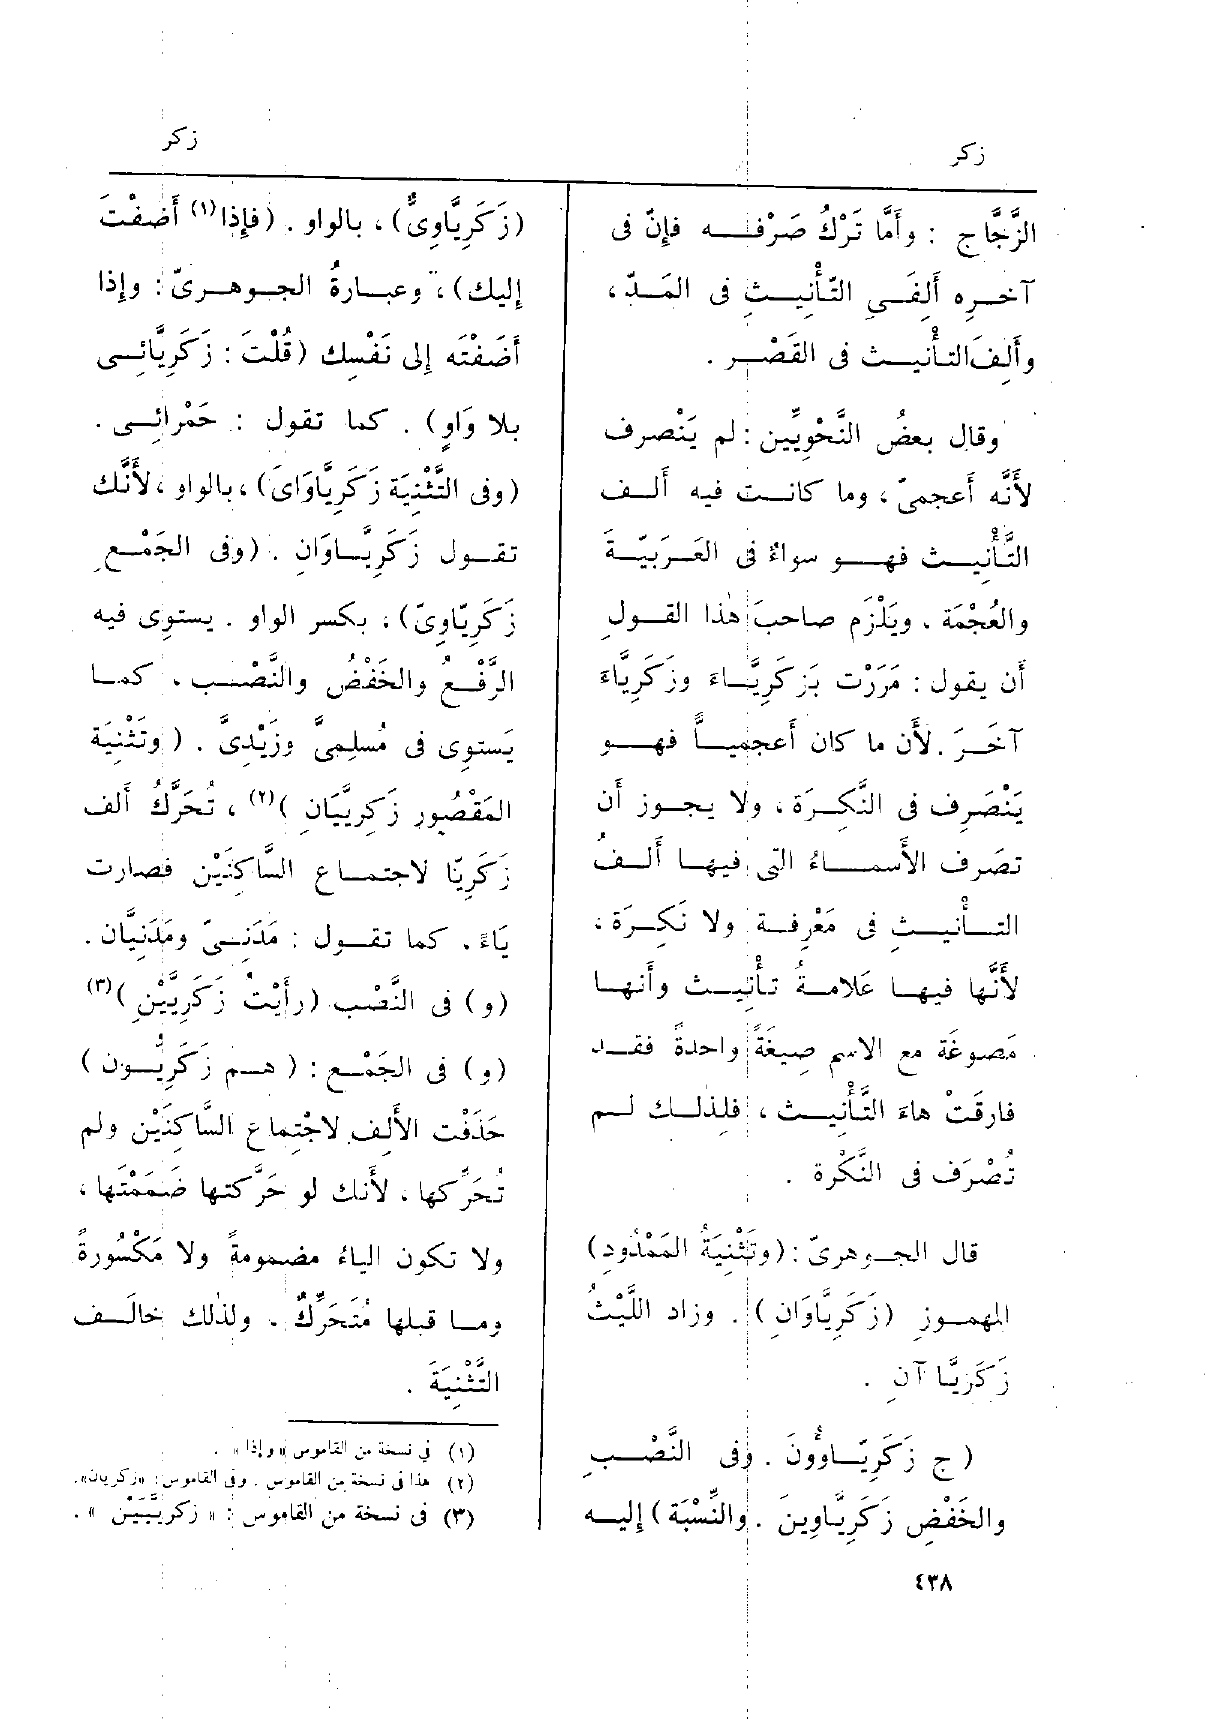 زكر
زكر
الزَّجَّاج : وأَمَّا تَرْكُ صَرْفـه فإِنّ فى
آخـره أَلِفَـىِ التَّأْنيـثِ فى المَـدّ ،
وأَلِفَ التـأْنيـث فى القَصْـر .
وقال بعضُ النَّحْوِيِّين : لم يَنْصرف
لأَنَّه أَعجمىّ ، وما كانـت فيه أَلـف
التَّأْنيـث فهـو سواءٌ فى العَـرَبيّـة
والعُجْمَة ، ويَلْزَم صاحبَ هٰذا القـولِ
أَن يقول : مَرَرْت بزَكَرِيَّـاءَ وزَكَرِيَّاءَ
آخَـرَ . لأَن ما كان أَعجميـاًّ فهـو
يَنْصَرِف فى النَّكِـرَة ، ولا يجـوز أَن
تصَرف الأَسمـاءُ التى فيهـا أَلـفُ
التـأْنيـثِ فى مَعْرِفـة ولا نَكِـرَة ،
لأَنَّها فيهـا عَلامـةُ تـأْنيـث وأَنهـا
مَصوغَة مع الاسم صِيغَةً واحدةً فقـد
فارقَتْ هاءَ التَّأْنيـث ، فلذلـك لـم
تُصْرَف فى النَّكْرة .
قال الجـوهرىّ : (وتَثْنِيَةُ المَمْدُودِ)
المهمـوز (زَكَرِيَّاوَانِ) . وزاد اللَّيْثُ
زَكَرِيَّـا آنِ .
( ج زَكَرِيّـاوُونَ . وفى النَّصْـبِ
والخَفْضِ زَكَرِيَّاوِينَ . والنِّسْبَة ) إِليـه
(زَكَرِيَّاوِىٌّ) ، بالواو . (فإِذا(١) أَضفْتَ
إِليك) ، وعبـارةُ الجـوهرىّ : وإِذا
أَضَفْتَه إِلى نَفْسِك (قُلْتَ : زَكَرِيَّائِـى
بلا وَاوٍ) . كما تقول : حَمْرائِـى .
(وفى التَّثْنِيَة زَكَرِيَّاوَاىَ) ، بالواو ، لأَنَّك
تقـول زَكَرِيَّـاوَانِ . (وفى الجَمْـعِ
زَكَرِيّاوِىّ) ، بكسر الواو . يستوِى فيه
الرَّفْـعُ والخَفْضُ والنَّصْـب ، كمـا
يَستوِى فى مُسلِمِىَّ وزَيْدِىَّ . (وتَثْنِيَة
المَقْصُورِ زَكرِيَّيَانِ )(٢) ، تُحَرَّكُ أَلف
زَكَرِيّا لاجتمـاع السَّاكِنَيْن فصارت
يَاءً ، كما تقـول : مَدَنـىّ ومَدَنِيَّان .
(و) فى النَّصْب (رأَيْتُ زَكَرِيَّيْنِ )(٣)
(و) فى الجَمْـع : ( هـم زَكَرِيُّـون )
حَذَفْت الأَلِف لاجْتِماع السَّاكِنَيْن ولم
تُحَرِّكها ، لأَنك لو حَرَّكتها ضَمَمْتَها ،
ولا تكون الياءُ مضمومةً ولا مَكْسُورةً
ومـا قبلها مُتَحَرِّكٌ ، ولذٰلك خالَـف
التَّثْنِيَةَ .
(١) في نسخة من القاموس « وإذا » .
(٢) هذا فى نسخة من القاموس . وفى القاموس : «زكريان».
(٣) فى نسخة من القاموس : « زكريَّيَيْن » .
٤٣٨